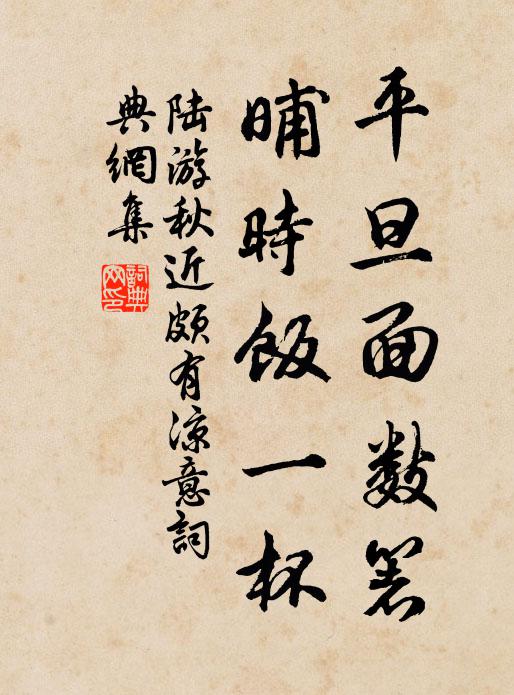 平旦面数箸
晡時飯一杯
陆游秋近頗有涼意詞
典網集
詞典网印